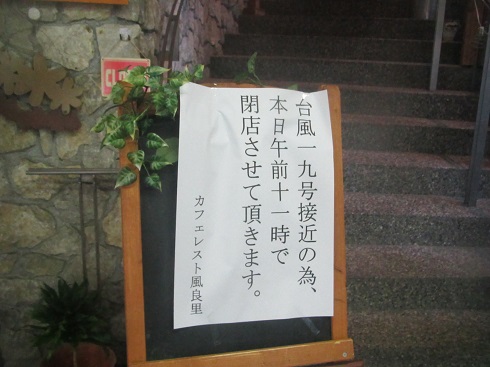 台風一九号接近の為、
本日午前十一時で
閉店させて頂きます。
カフェレスト風良里